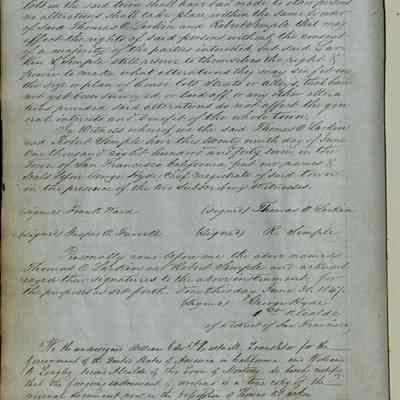 lots in the said town shall have
no alterations shall take place within the same by order
of said Thomas O. Larkin and Robert Semple that may
affect the rights of said persons without the consent
of a majority of the parties interested, but said Lar-
kin & Semple still reserve to themselves the right &
power to make what alterations they may see fit in
the size or plan of house lots streets or alleys, that have
not yet been surveyed or laid off, or any other altera
tions provided said alterations do not affect the gen-
eral interests and benefit of the whole town.
In Witness whereof we the said Thomas O. Larkin
and Robert Semple have this twenty ninth day of June
One thousand eight hundred and forty seven in the
Town of San Francisco California, put our names &
Seals before George Hyde Chief magistrate of said town
in the presence of the two Subscribing Witnesses.
(signed) Frank Ward (signed) Thomas O. Larkin
(signed) (signed) R. Semple
Personally came before me the above named
Thomas O Larkin and Robert Semple and acknowl
edged their signatures to the above instrument, for
the purposes as set forth. Done this day June 30, 1847.
(signed) George Hyde
1st Alcalde
of District of San Francisco
We the undersigned William Translator for the
Government of the United States of America in California and William
R. Longley Alcalde of this Town of Monterey do hereby certify
that the foregoing instrument of writing is a true copy of the
original document now in the possession of Thomas O. Larkin